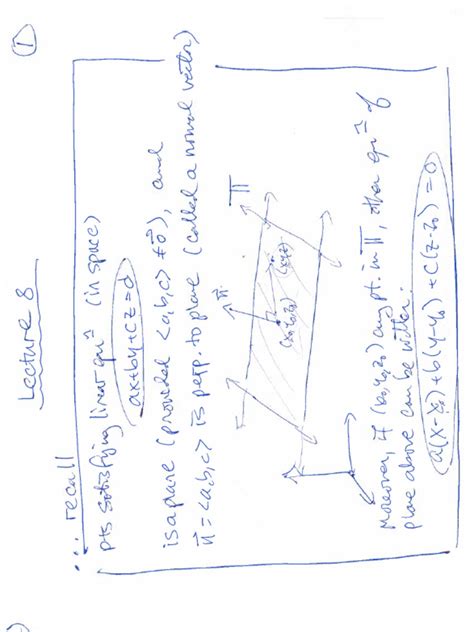 Lecture 8
①
... recall
pts satisfying linear eqnⁿ (in space)
ax+by+cz=d
is a plane (provided <a,b,c> ≠ 0⃗), and
n⃗ = <a,b,c> is perp. to plane (called a normal vector)
n⃗
Π
(x₀,y₀,z₀)
(x,y,z)
Moreover, if (x₀,y₀,z₀) any pt. in Π, then eqⁿ of
plane above can be written:
a(x-x₀)+b(y-y₀)+c(z-z₀)=0